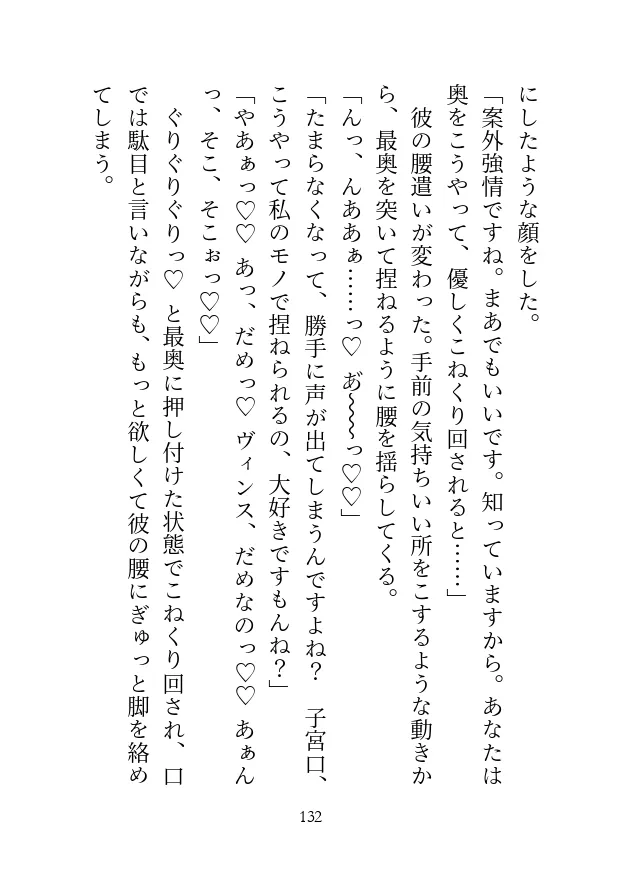 にしたような顔をした。
「案外強情ですね。まあでもいいです。知っていますから。あなたは
奥をこうやって、優しくこねくり回されると……」
彼の腰遣いが変わった。手前の気持ちいい所をこするような動きか
ら、最奥を突いて捏ねるように腰を揺らしてくる。
「んっ、んああぁ……っ♡ お゙〜〜〜っ♡♡」
「たまらなくなって、勝手に声が出てしまうんですよね？　子宮口、
こうやって私のモノで捏ねられるの、大好きですもんね？」
「やあぁっ♡♡ あっ、だめっ♡ ヴィンス、だめなのっ♡♡ あぁん
っ、そこ、そこぉっ♡♡」
ぐりぐりぐりっ♡ と最奥に押し付けた状態でこねくり回され、口
では駄目と言いながらも、もっと欲しくて彼の腰にぎゅっと脚を絡め
てしまう。
132